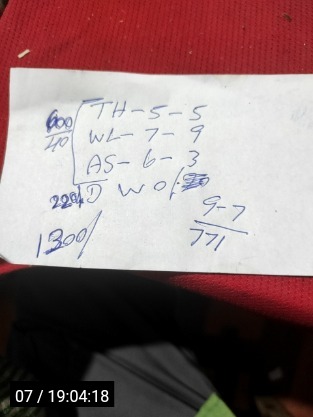 600 TH-5-5
40 WL-7-9
AS-6-3
220/ D W O/
9-7
1300/ 771
07 / 19:04:18